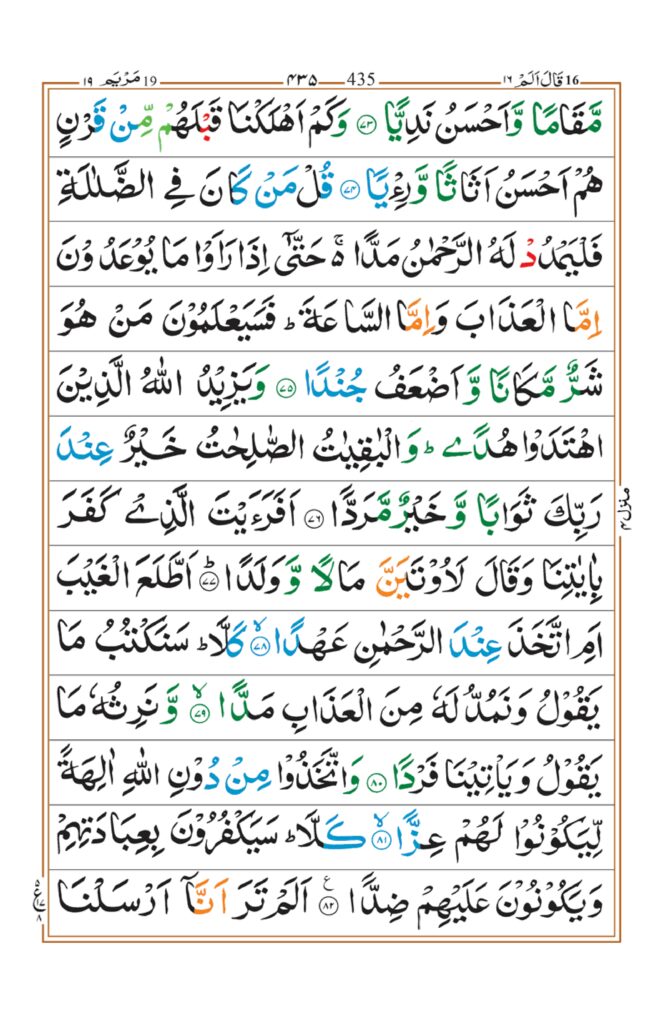 ١٩ مَرْيَم 19 ٤٣٥ 435 ١٦ قَالَ اَلَمْ 16
مَّقَامًا وَّاَحْسَنُ نَدِيًّا ﴿٧٣﴾ وَكَمْ اَهْلَكْنَا قَبْلَهُمْ مِّنْ قَرْنٍ
هُمْ اَحْسَنُ اَثَاثًا وَّرِءْيًا ﴿٧٤﴾ قُلْ مَنْ كَانَ فِي الضَّلٰلَةِ
فَلْيَمْدُدْ لَهُ الرَّحْمٰنُ مَدًّا ۚ حَتّٰٓى اِذَا رَاَوْا مَا يُوْعَدُوْنَ
اِمَّا الْعَذَابَ وَاِمَّا السَّاعَةَ ؕ فَسَيَعْلَمُوْنَ مَنْ هُوَ
شَرٌّ مَّكَانًا وَّاَضْعَفُ جُنْدًا ﴿٧٥﴾ وَيَزِيْدُ اللّٰهُ الَّذِيْنَ
اهْتَدَوْا هُدًى ؕ وَالْبٰقِيٰتُ الصّٰلِحٰتُ خَيْرٌ عِنْدَ
رَبِّكَ ثَوَابًا وَّخَيْرٌ مَّرَدًّا ﴿٧٦﴾ اَفَرَءَيْتَ الَّذِيْ كَفَرَ
بِاٰيٰتِنَا وَقَالَ لَاُوْتَيَنَّ مَالًا وَّوَلَدًا ؕ﴿٧٧﴾ اَطَّلَعَ الْغَيْبَ
اَمِ اتَّخَذَ عِنْدَ الرَّحْمٰنِ عَهْدًا ۙ﴿٧٨﴾ كَلَّا ؕ سَنَكْتُبُ مَا
يَقُوْلُ وَنَمُدُّ لَهٗ مِنَ الْعَذَابِ مَدًّا ۙ﴿٧٩﴾ وَّنَرِثُهٗ مَا
يَقُوْلُ وَيَاْتِيْنَا فَرْدًا ﴿٨٠﴾ وَاتَّخَذُوْا مِنْ دُوْنِ اللّٰهِ اٰلِهَةً
لِّيَكُوْنُوْا لَهُمْ عِزًّا ۙ﴿٨١﴾ كَلَّا ؕ سَيَكْفُرُوْنَ بِعِبَادَتِهِمْ
وَيَكُوْنُوْنَ عَلَيْهِمْ ضِدًّا ﴿٨٢﴾ۧ اَلَمْ تَرَ اَنَّآ اَرْسَلْنَا
منزل ٤
٥ ع ١٧ ٨